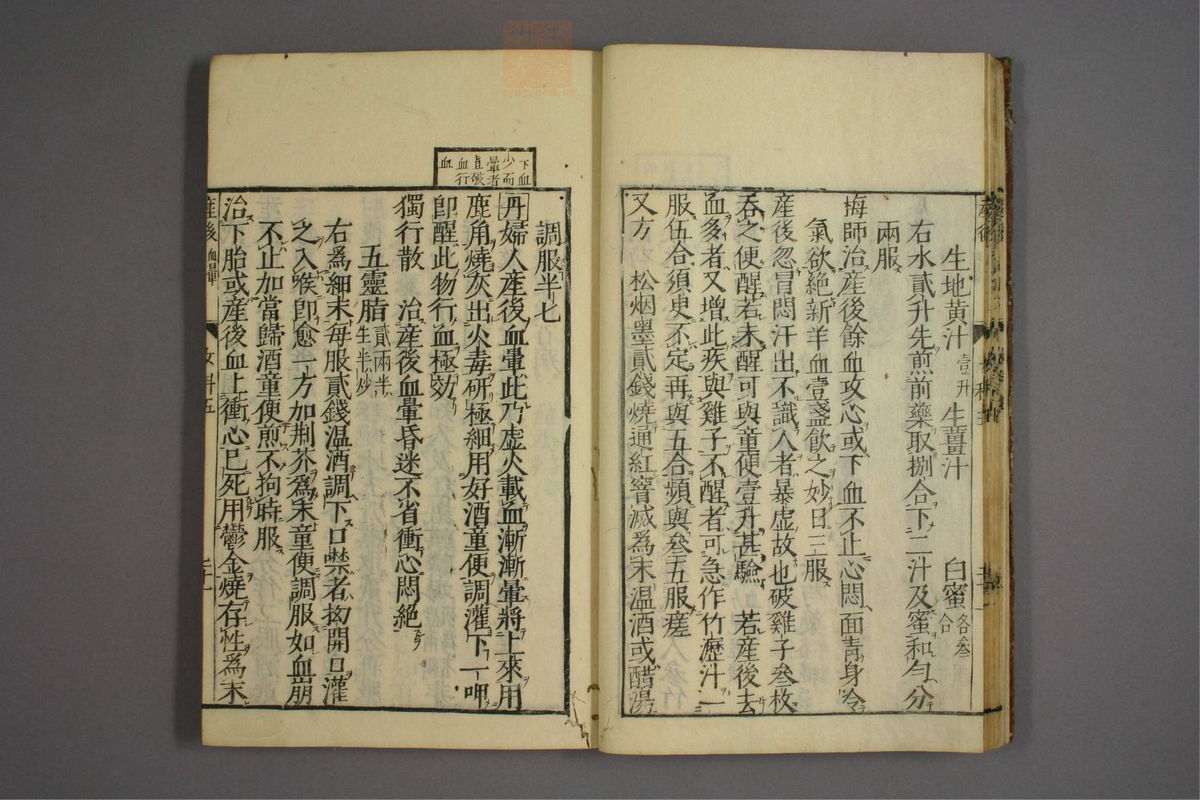 生地黃汁壹升　生薑汁　白蜜各叁合
右水貳升先煎前藥取捌合下二汁及蜜和勻分
兩服
梅師治産後餘血攻心或下血不止心悶面青身冷
氣欲絕新羊血壹盞飲之妙日三服
産後忽冒悶汗出不識人者暴虛故也破雞子叁枚
吞之便醒若未醒可與童便壹升甚驗　若産後去
血多者又增此疾與雞子不醒者可急作竹瀝汁一
服伍合須臾不定再與五合頻與叁五服瘥
又方　松烟墨貳錢燒通紅窨滅爲末温酒或醋湯
下血少而暈者直破血行血
調服半七
丹婦人産後血暈此乃虛火載血漸漸暈將上來用
鹿角燒灰出火毒研極細用好酒童便調灌下一呷
卽醒此物行血極効
獨行散　治産後血暈昏迷不省衝心悶絕
五靈脂貳兩半生半炒
右爲細末每服貳錢温酒調下口噤者抝開口灌
之入喉卽愈一方加荆芥爲末童便調服如血崩
不止加當歸酒童便煎不拘時服
治下胎或産後血上衝心已死用鬱金燒存性爲末
産後血暈　女科五　二十一